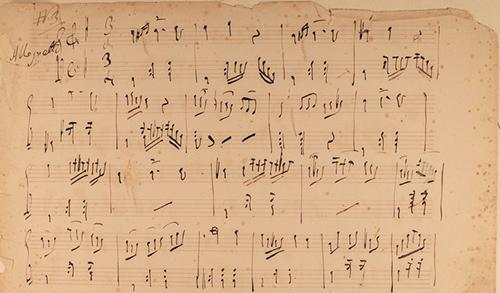 #3
Allegretto
3
3